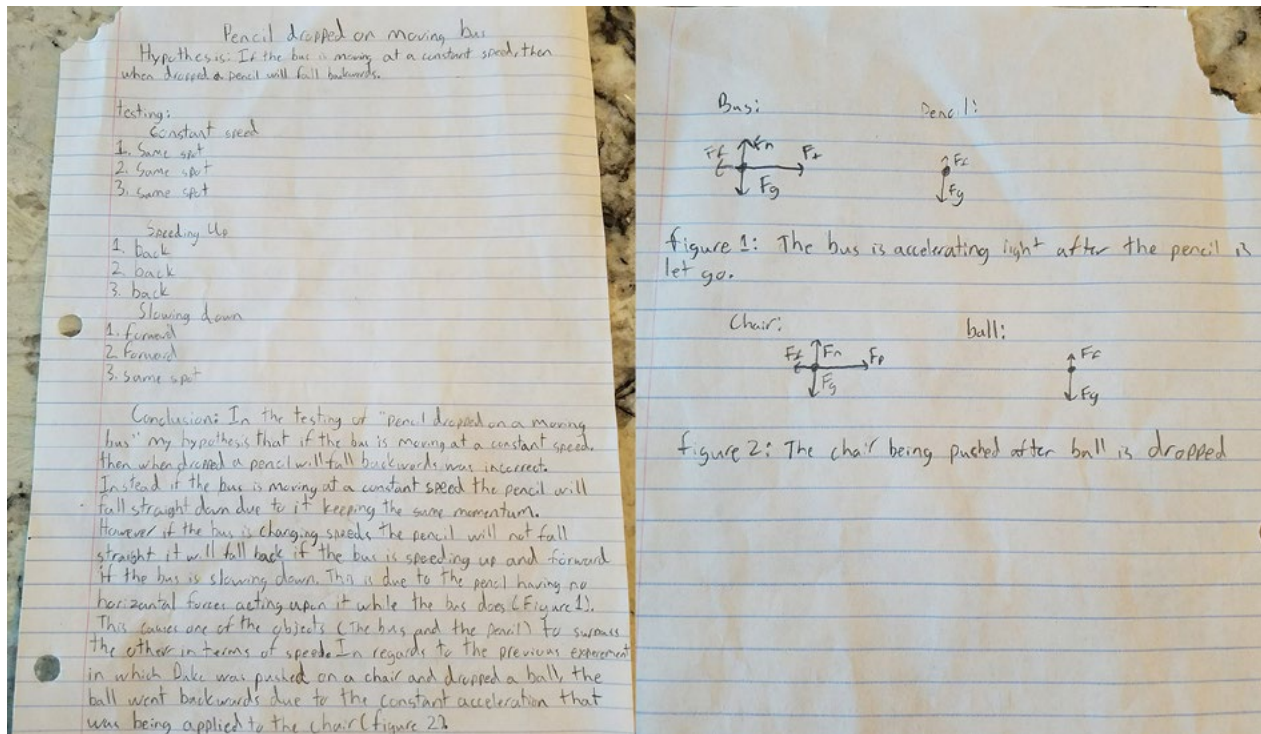 Pencil dropped on moving bus
Hypothesis: If the bus is moving at a constant speed, then
when dropped a pencil will fall backwards.
testing:
Constant speed
1. Same spot
2. Same spot
3. same spot
Speeding Up
1. back
2. back
3. back
Slowing down
1. forward
2. Forward
3. same spot
Conclusion: In the testing of "pencil dropped on a moving
bus" my hypothesis that if the bus is moving at a constant speed.
then when dropped a pencil will fall backwards was incorrect.
Instead if the bus is moving at a constant speed the pencil will
fall straight down due to it keeping the same momentum.
However if the bus is changing speeds the pencil will not fall
straight it will fall back if the bus is speeding up and forward
if the bus is slowing down. This is due to the pencil having no
horizantal forces acting upon it while the bus does (Figure 1).
This causes one of the objects (The bus and the pencil) to surpass
the other in terms of speed. In regards to the previous experement
in which Duke was pushed on a chair and dropped a ball, the
ball went backwards due to the constant acceleration that
was being applied to the chair (figure 2).
Bus: Pencil:
Ff Fn Ff
Fg Fg
figure 1: The bus is accelerating right after the pencil is
let go.
Chair: ball:
Ff Fn Fp Ff
Fg Fg
figure 2: The chair being pushed after ball is dropped